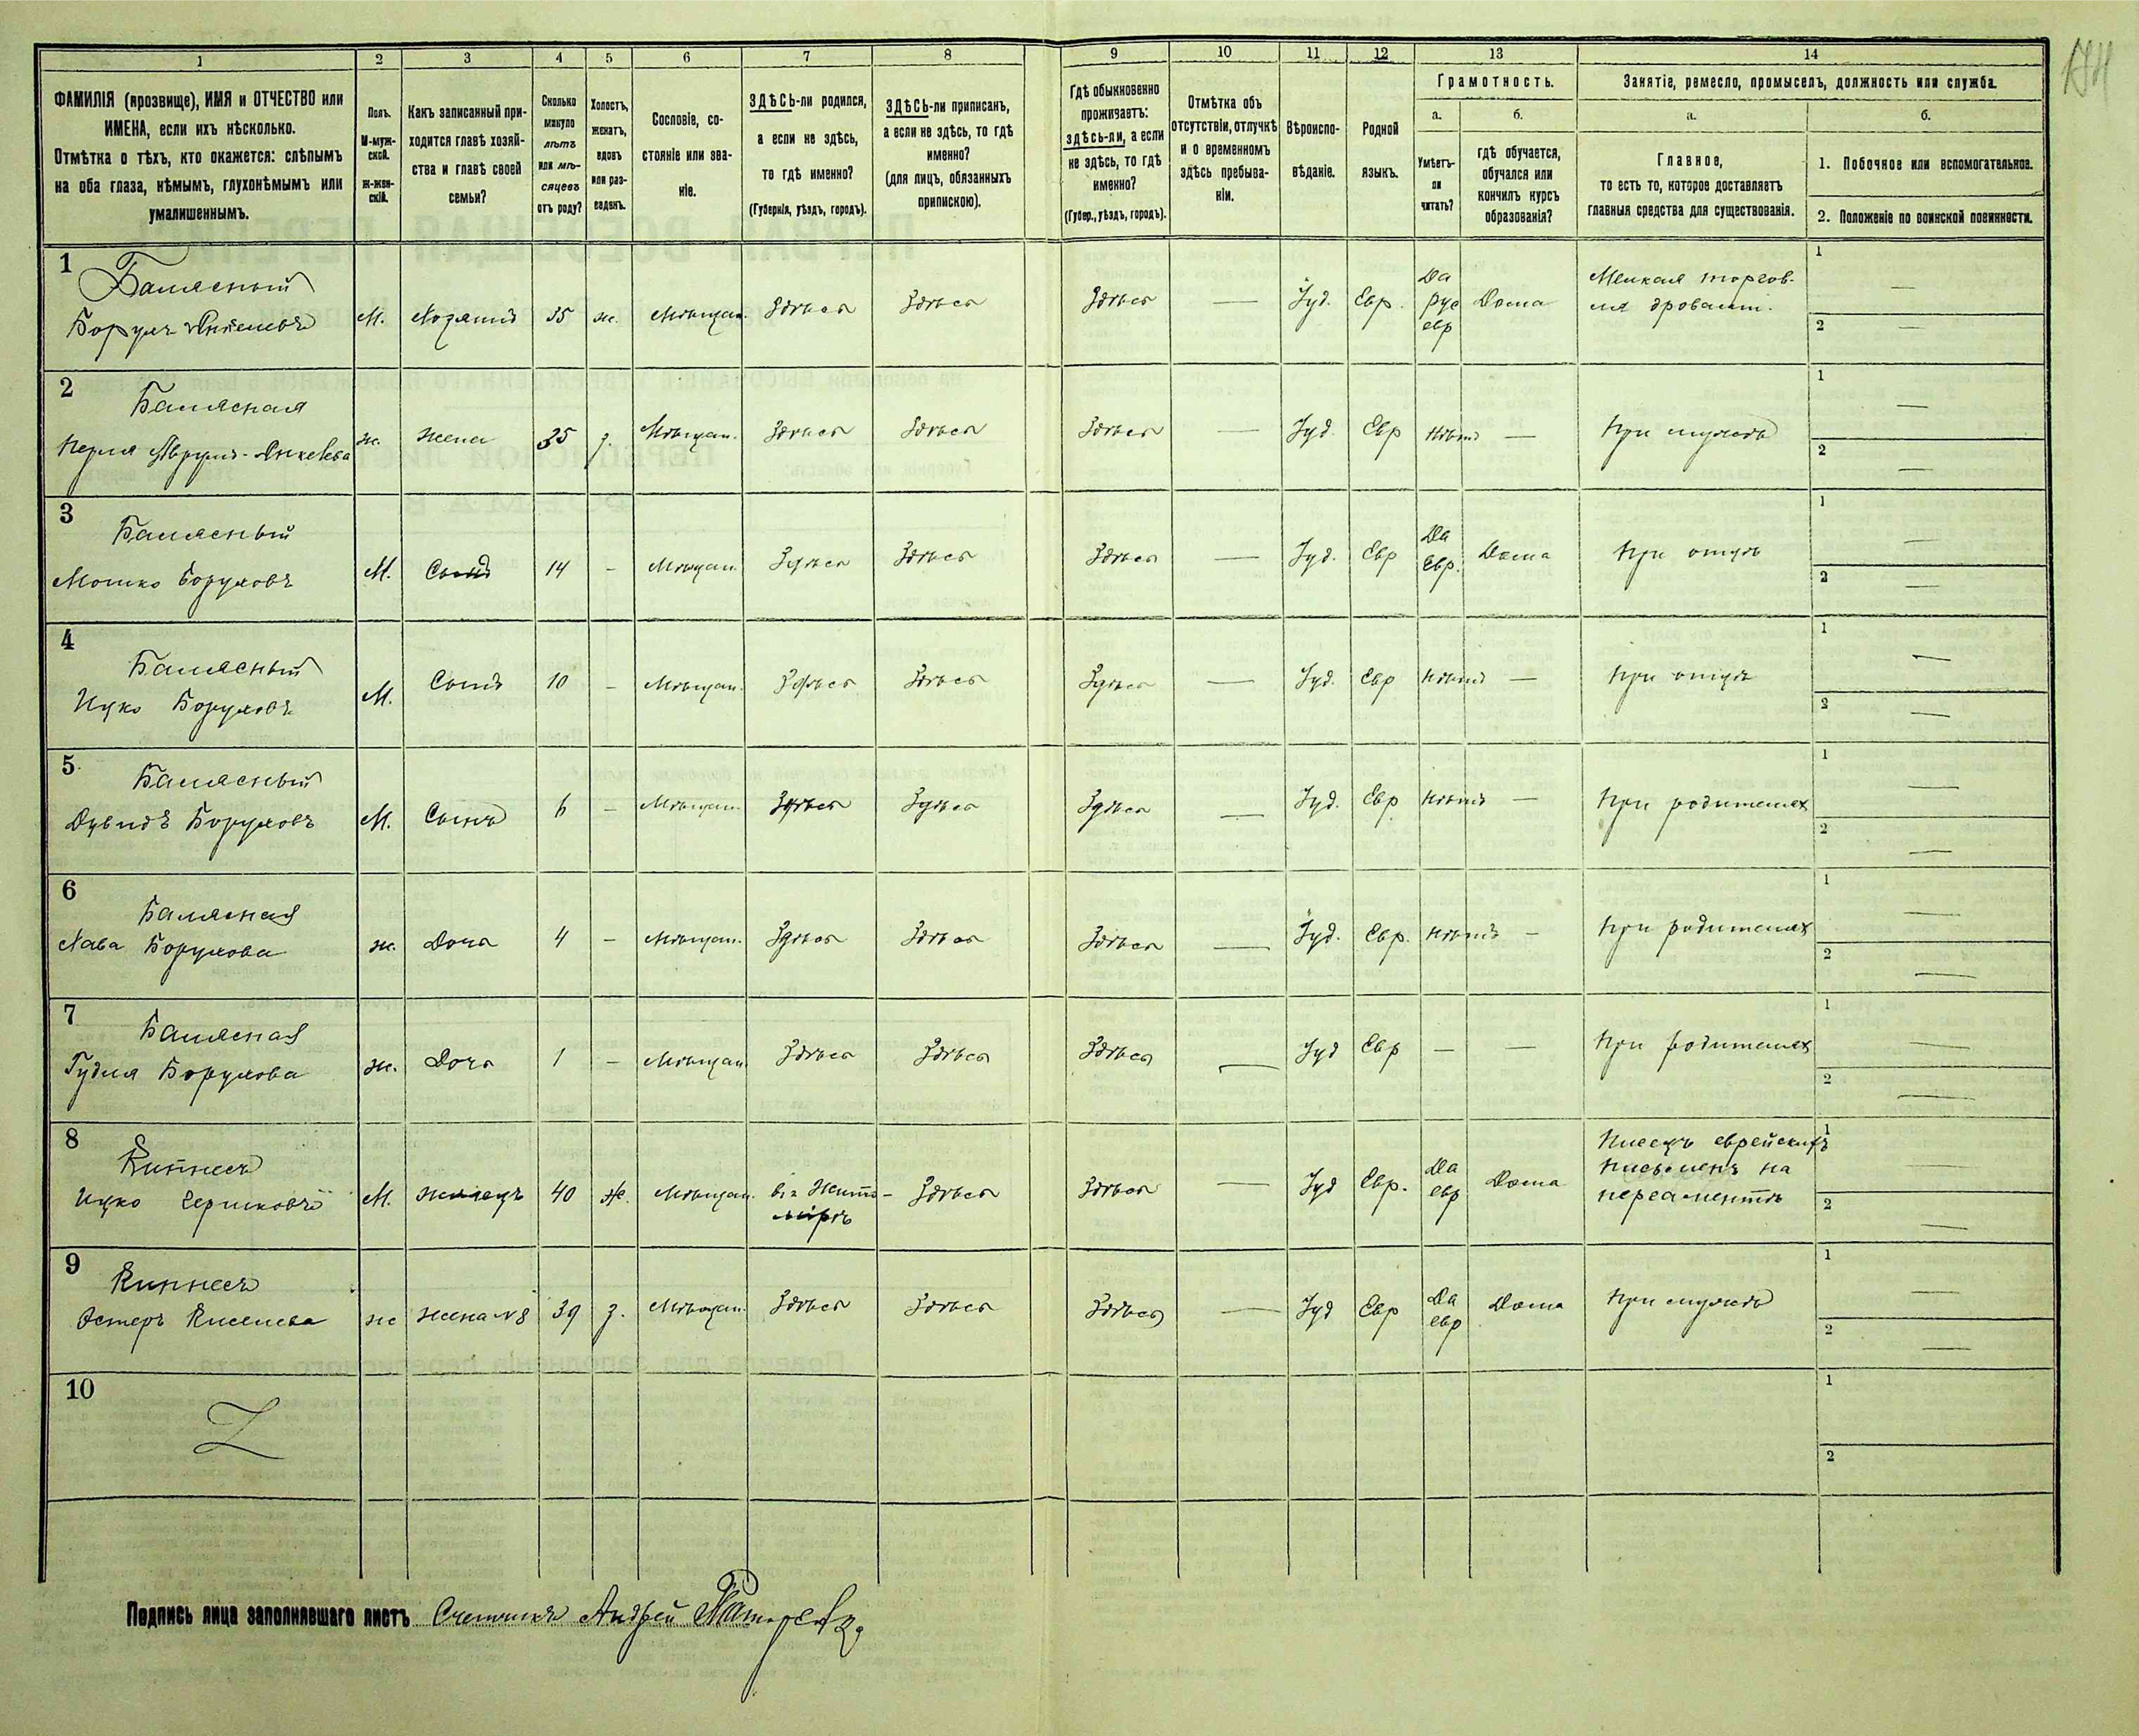 1 2 3 4 5 6 7 8 9 10 11 12 13 14
ФАМИЛІЯ (прозвище), ИМЯ и ОТЧЕСТВО или
ИМЕНА, если ихъ нѣсколько.
Отмѣтка о тѣхъ, кто окажется: слѣпымъ
на оба глаза, нѣмымъ, глухонѣмымъ или
умалишеннымъ.
Полъ.
М-муж-
ской.
ж-жен-
скій.
Какъ записанный при-
ходится главѣ хозяй-
ства и главѣ своей
семьи?
Сколько
минуло
лѣтъ
или мѣ-
сяцевъ
отъ роду?
Холостъ,
женатъ,
вдовъ
или раз-
веденъ.
Сословіе, со-
стояніе или зва-
ніе.
ЗДѢСЬ-ли родился,
а если не здѣсь,
то гдѣ именно?
(Губернія, уѣздъ, городъ).
ЗДѢСЬ-ли приписанъ,
а если не здѣсь, то гдѣ
именно?
(для лицъ, обязанныхъ
припискою).
Гдѣ обыкновенно
проживаетъ:
здѣсь-ли, а если
не здѣсь, то гдѣ
именно?
(Губер., уѣздъ, городъ).
Отмѣтка объ
отсутствіи, отлучкѣ
и о временномъ
здѣсь пребыва-
ніи.
Вѣроиспо-
вѣданіе.
Родной
языкъ.
Грамотность.
а.
Умѣетъ-
ли
читать?
б.
гдѣ обучается,
обучался или
кончилъ курсъ
образованія?
Занятіе, ремесло, промыселъ, должность или служба.
а.
Главное,
то есть то, которое доставляетъ
главныя средства для существованія.
б.
1. Побочное или вспомогательное.
2. Положеніе по воинской повинности.
1
Балясный
Борухъ М. Хозяинъ 35 ж. Мѣщан. Здѣсь Здѣсь Здѣсь — Іуд. Евр. Да рус евр Дома Мелкая торгов-
ля дровами.
1 —
2 —
2
Балясная
Перля Аврумъ-Янкелева ж. жена 35 з. Мѣщан. Здѣсь Здѣсь Здѣсь — Іуд. Евр Нѣтъ — При мужѣ
1 —
2 —
3
Балясный
Мошко Боруховъ М. Сынъ 14 - Мѣщан. Здѣсь Здѣсь Здѣсь — Іуд. Евр Да Евр. Дома При отцѣ
1 —
2 —
4
Балясный
Ицко Боруховъ М. Сынъ 10 - Мѣщан. Здѣсь Здѣсь Здѣсь — Іуд. Евр Нѣтъ — При отцѣ
1 —
2 —
5
Балясный
Дувидъ Боруховъ М. Сынъ 6 - Мѣщан. Здѣсь Здѣсь Здѣсь — Іуд. Евр Нѣтъ — При родителях
1 —
2 —
6
Балясная
Хава Борухова ж. Дочь 4 - Мѣщан. Здѣсь Здѣсь Здѣсь — Іуд. Евр. Нѣтъ - При родителях
1 —
2 —
7
Балясная
Гудля Борухова ж. Дочь 1 - Мѣщан. Здѣсь Здѣсь Здѣсь — Іуд Евр — — При родителях
1 —
2 —
8
Кипнесъ
Ицко Гершковъ М. жилецъ 40 ж. Мѣщан. въ Жито-
мірѣ Здѣсь Здѣсь — Іуд Евр. Да евр Дома Писецъ еврейскихъ
письменъ на
пергаментѣ
1 —
2 —
9
Кипнесъ
Эстеръ ж жена №8 39 з. Мѣщан. Здѣсь Здѣсь Здѣсь — Іуд Евр Да евр Дома При мужѣ
1 —
2 —
10
Z
1
2
Подпись лица заполнявшаго листъ Счетчикъ Андрей